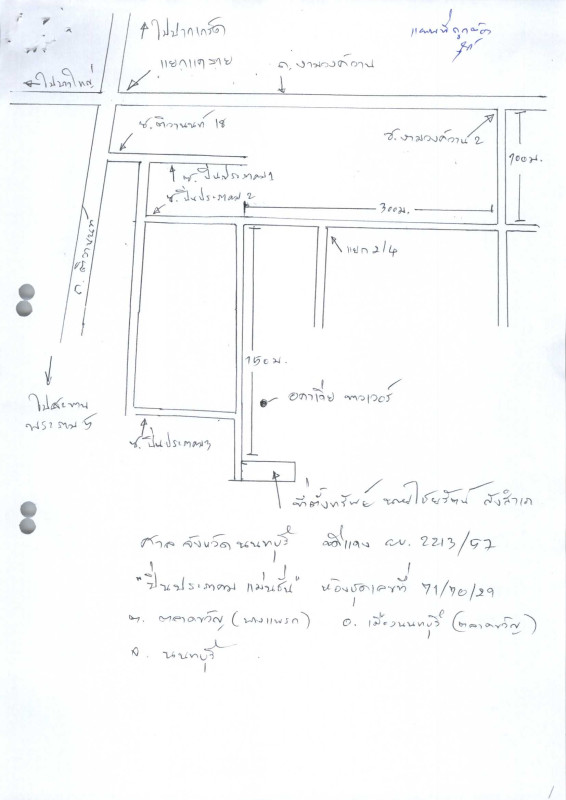 ไปปากเกร็ด
แผนที่ถูกต้อง
แยกแคราย
ถ.งามวงศ์วาน
ซ.ติวานนท์ 18
ซ.งามวงศ์วาน 2
700 ม.
ซ.ปิ่นประภาคม 1
ซ.ปิ่นประภาคม 2
300ม.
แยก 2/4
ถ.ติวานนท์
150 ม.
ไปสะพาน
พระราม 5
ทาวเวอร์
ซ.ปิ่นประภาคม 3
ที่ตั้งทรัพย์ นายไชยรัตน์
ศาลจังหวัดนนทบุรี คดีแดง ผบ. 2213/57
"ปิ่นประภาคม แมนชั่น" ห้องชุดเลขที่ 71/70/29
ต. ตลาดขวัญ (บางแพรก) อ. เมืองนนทบุรี (ตลาดขวัญ)
จ. นนทบุรี